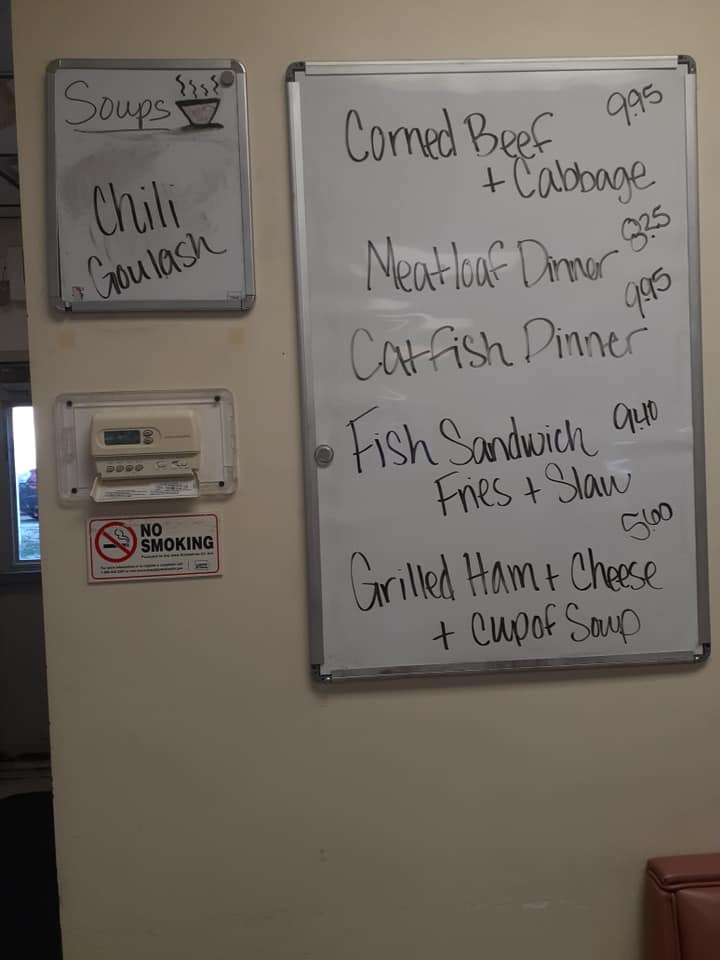 Soups
Chili
Goulash
9.95
Corned Beef
+ Cabbage
8.25
Meatloaf Dinner
9.95
Catfish Dinner
9.40
Fish Sandwich
Fries + Slaw
5.60
Grilled Ham + Cheese
+ cup of Soup
NO
SMOKING